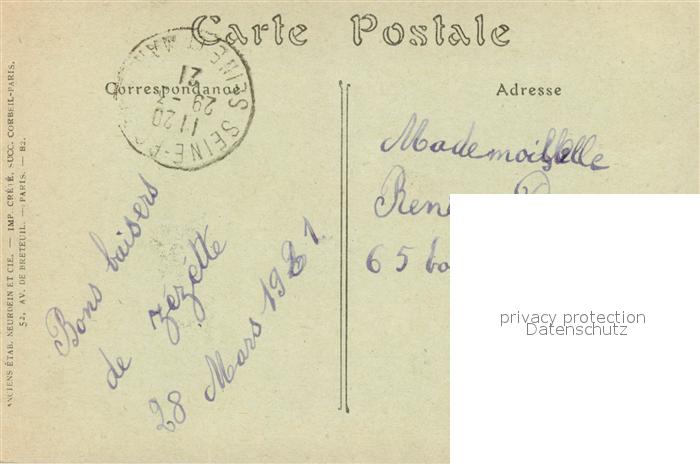 Carte Postale
Correspondance
Adresse
SEINE-P
11 20
29 -
21
Bons baisers
de Zézétte
28 Mars 1921.
Mademoiselle
René
65
privacy protection
Datenschutz
ANCIENS ÉTAB. NEURDEIN ET CIE. — IMP. CRÉTÉ, SUCC. CORBEIL-PARIS.
52, AV. DE BRETEUIL. — PARIS. — B2.